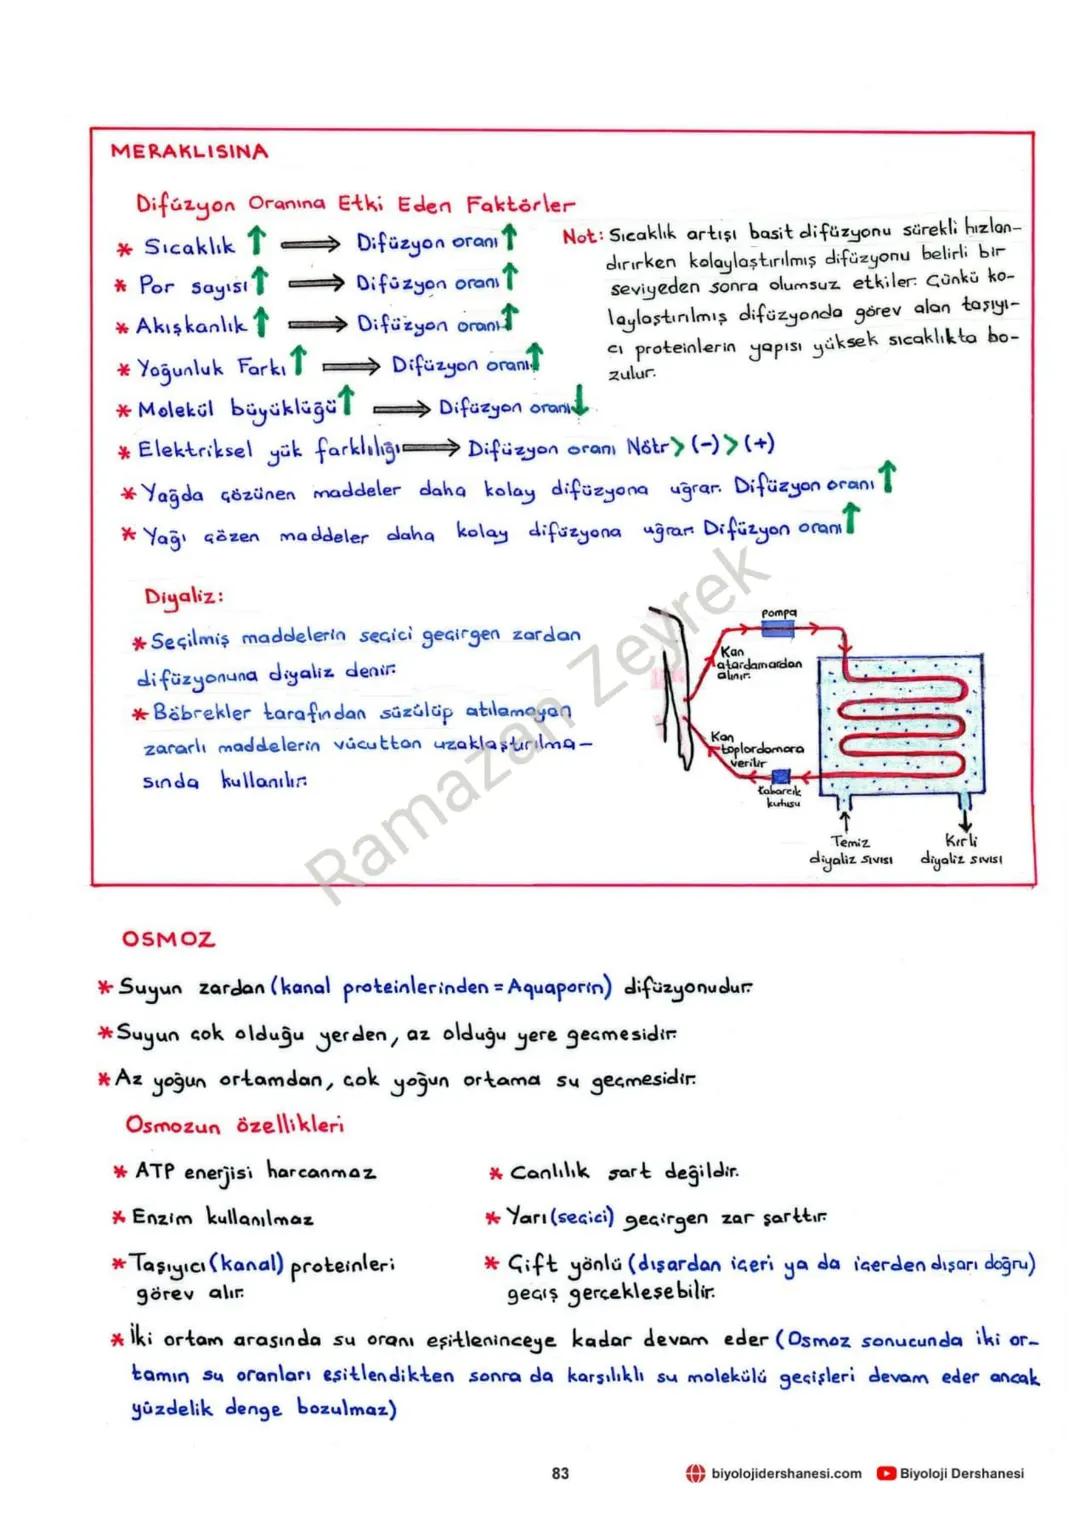 MERAKLISINA
Difüzyon Oranına Etki Eden Faktörler
* Sıcaklık ↑ ⟹ Difüzyon oranı ↑
* Por sayısı ↑ ⟹ Difüzyon oranı ↑
* Akışkanlık ↑ ⟹ Difüzyon oranı ↑
* Yoğunluk Farkı ↑ ⟹ Difüzyon oranı ↑
* Molekül büyüklüğü ↑ ⟹ Difüzyon oranı ↓
* Elektriksel yük farklılığı ⟹ Difüzyon oranı Nötr > (-) > (+)
* Yağda çözünen maddeler daha kolay difüzyona uğrar. Difüzyon oranı ↑
* Yağı çözen maddeler daha kolay difüzyona uğrar. Difüzyon oranı ↑
Not: Sıcaklık artışı basit difüzyonu sürekli hızlan-
dırırken kolaylaştırılmış difüzyonu belirli bir
seviyeden sonra olumsuz etkiler. Çünkü ko-
laylaştırılmış difüzyonda görev alan taşıyı-
cı proteinlerin yapısı yüksek sıcaklıkta bo-
zulur.
Diyaliz:
* Seçilmiş maddelerin seçici geçirgen zardan
difüzyonuna diyaliz denir.
* Böbrekler tarafından süzülüp atılamayan
zararlı maddelerin vücuttan uzaklaştırılma-
sında kullanılır.
Pompa
Kan
atardamardan
alınır.
Kan
toplardamara
verilir
kabarcık
kutusu
Temiz
diyaliz sıvısı
Kirli
diyaliz sıvısı
Ramazan Zeyrek
OSMOZ
* Suyun zardan (kanal proteinlerinden = Aquaporin) difüzyonudur.
* Suyun çok olduğu yerden, az olduğu yere geçmesidir.
* Az yoğun ortamdan, çok yoğun ortama su geçmesidir.
Osmozun özellikleri
* ATP enerjisi harcanmaz
* Enzim kullanılmaz
* Taşıyıcı (kanal) proteinleri
görev alır.
* Canlılık şart değildir.
* Yarı (seçici) geçirgen zar şarttır.
* Çift yönlü (dışardan içeri ya da içerden dışarı doğru)
geçiş gerçekleşebilir.
* İki ortam arasında su oranı eşitleninceye kadar devam eder (Osmoz sonucunda iki or-
tamın su oranları eşitlendikten sonra da karşılıklı su molekülü geçişleri devam eder ancak
yüzdelik denge bozulmaz)
83
biyolojidershanesi.com
Biyoloji Dershanesi